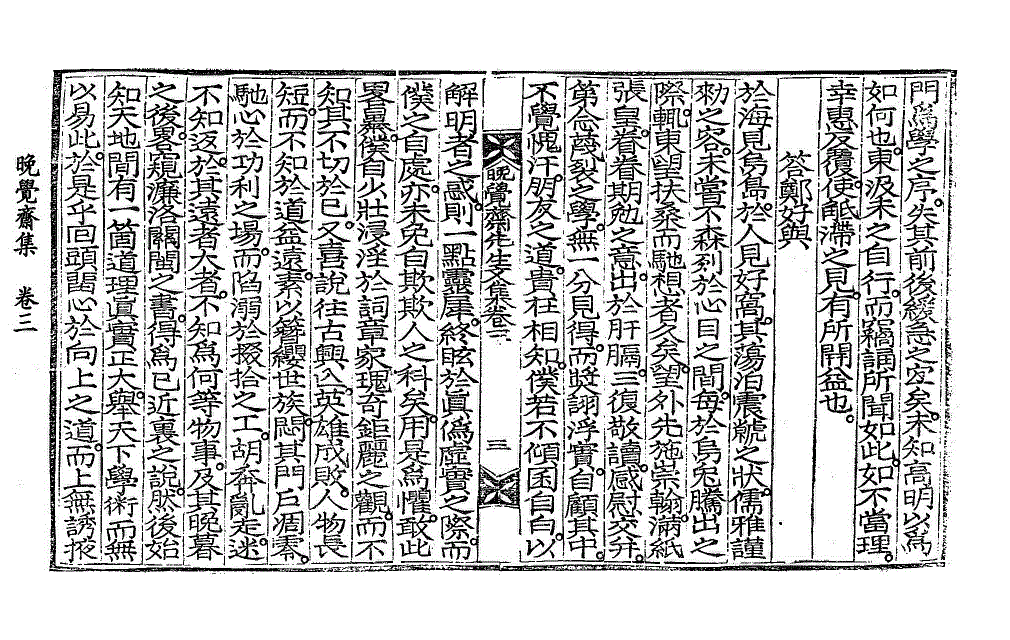 門爲學之序。失其前後緩急之宜矣。未知高明以爲
如何也。東汲未之自行。而竊誦所聞如此。如不當理。
幸惠反覆。使舐滯之見。有所開益也。
答鄭好與
於海見舄島。於人見好窩。其蕩泊震虩之狀。儒雅謹
勑之容。未嘗不森列於心目之間。每於烏兔騰出之
際。輒東望扶桑而馳想者久矣。望外先施崇翰。滿紙
張皇。眷眷期勉之意。出於肝膈。三復敬讀。感慰交幷。
第念蔑裂之學。無一分見得。而奬詡浮實。自顧其中。
不覺愧汗。朋友之道。貴在相知。僕若不傾囷自白。以
晩覺齋先生文集卷三
三
解明者之惑。則一點靈犀。終眩於眞僞虛實之際。而
僕之自處。亦未免自欺欺人之科矣。用是爲懼。敢此
畧暴。僕自少壯浸淫於詞章家瑰奇鉅麗之觀。而不
知其不切於己。又喜說往古興亾。英雄成敗。人物長
短。而不知於道益遠。素以簪纓世族。悶其門戶凋零。
馳心於功利之場。而陷溺於掇拾之工。胡奔亂走。迷
不知返。於其遠者大者。不知爲何等物事。及其晩暮
之後。畧窺濂洛關閩之書。得爲已近裏之說。然後始
知天地間有一箇道理眞實正大。擧天下學術而無
以易此。於是乎回頭關心於向上之道。而上無誘掖
晩覺齋集　卷三